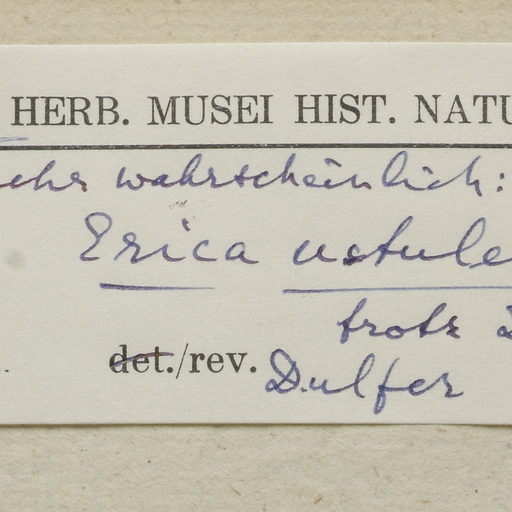 HERB. MUSEI HIST. NATU
sehr wahrscheinlich:
Erica ustule
trotz
det./rev. Dulfer